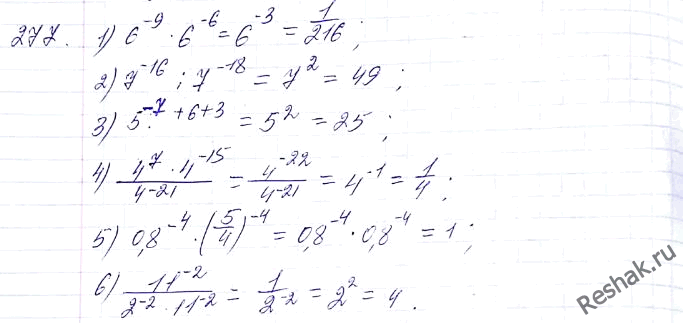 277. 1) 6^-9 · 6^-6 = 6^-3 = 1/216 ;
2) 7^-16 : 7^-18 = 7^2 = 49 ;
3) 5^-7+6+3 = 5^2 = 25 ;
4) (4^7 · 4^-15)/(4^-21) = (4^-22)/(4^-21) = 4^-1 = 1/4 ;
5) 0,8^-4 · (5/4)^-4 = 0,8^-4 · 0,8^-4 = 1 ;
6) (11^-2)/(2^-2 · 11^-2) = 1/(2^-2) = 2^2 = 4 .
Reshak.ru